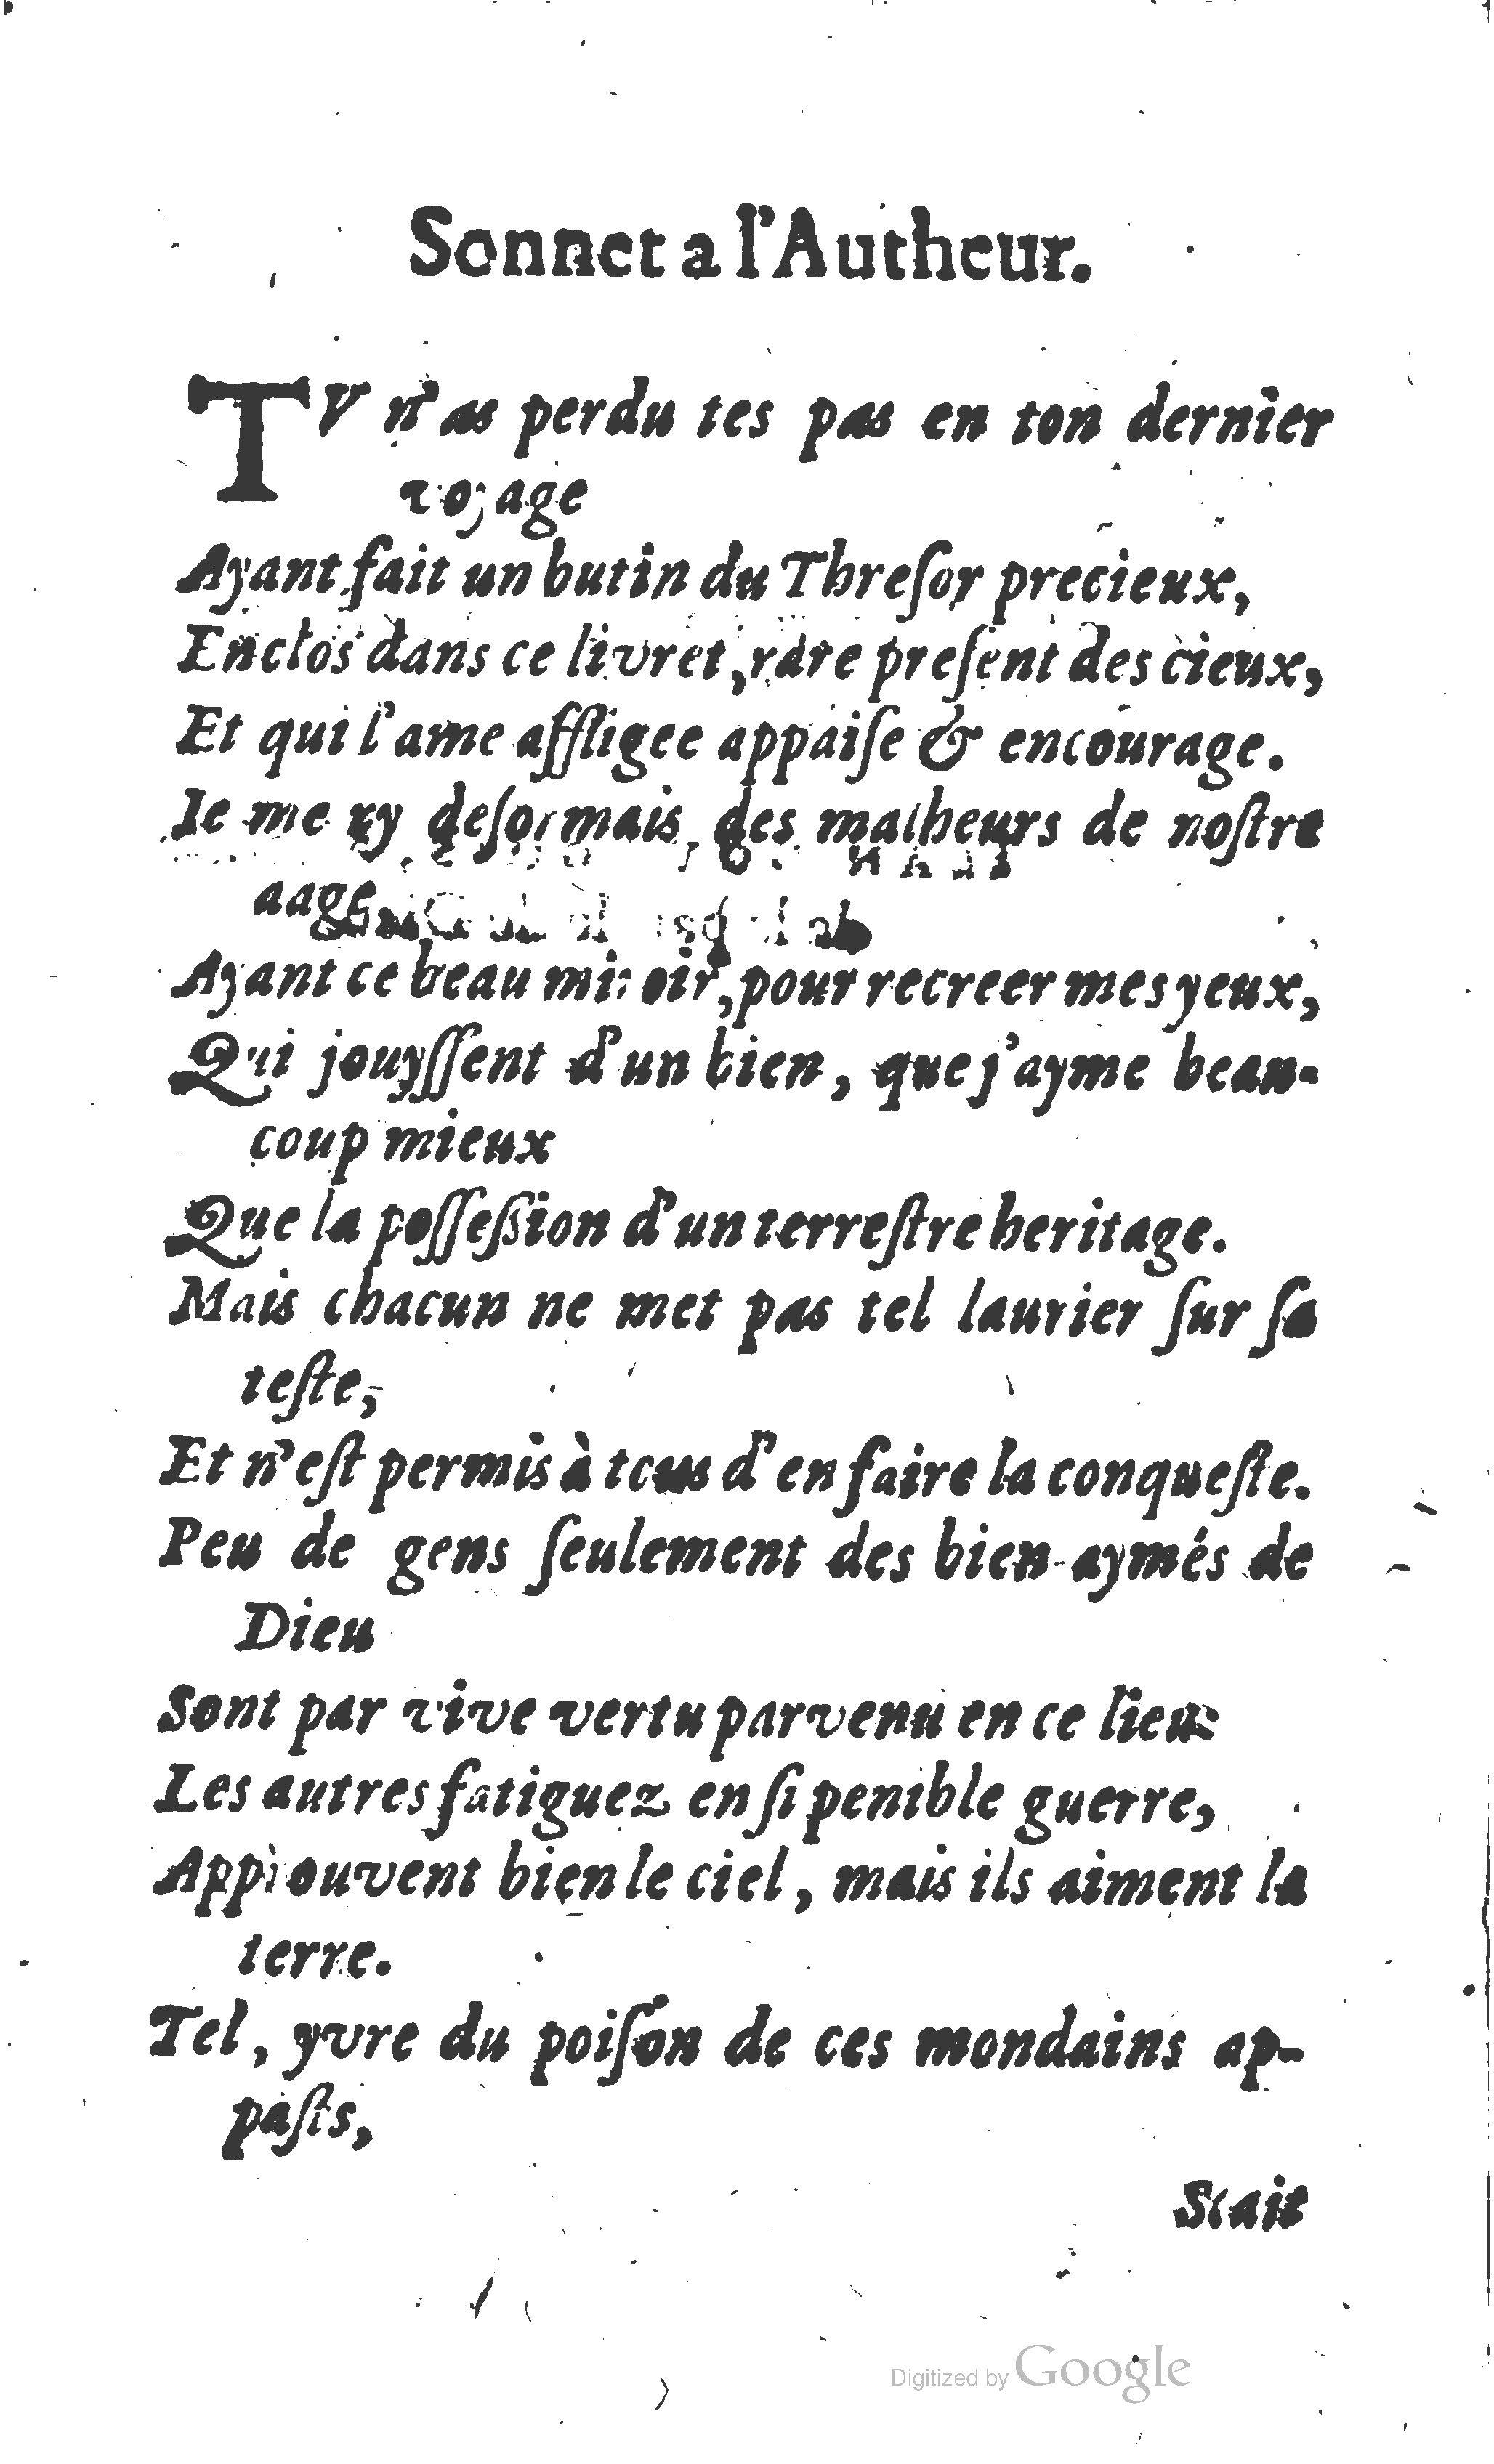 Sonnet a l'Autheur.
TV n'as perdu tes pas en ton dernier
voyage
Ayant fait un butin du Threſor precieux,
Enclos dans ce livret, rare preſent des cieux,
Et qui l'ame affligee appaiſe & encourage.
Ie me ry deſormais des malheurs de noſtre
aage
Ayant ce beau miroir, pour recreer mes yeux,
Qui jouyſſent d'un bien, que j'ayme beau-
coup mieux
Que la poſſeſsion d'un terreſtre heritage.
Mais chacun ne met pas tel laurier ſur ſa
teſte,
Et n'eſt permis à tous d'en faire la conqueſte.
Peu de gens ſeulement des bien-aymés de
Dieu
Sont par vive vertu parvenu en ce lieu:
Les autres fatiguez en ſi penible guerre,
Approuvent bien le ciel, mais ils aiment la
terre.
Tel, yvre du poiſon de ces mondains ap-
paſts,
Scait
Digitized by Google